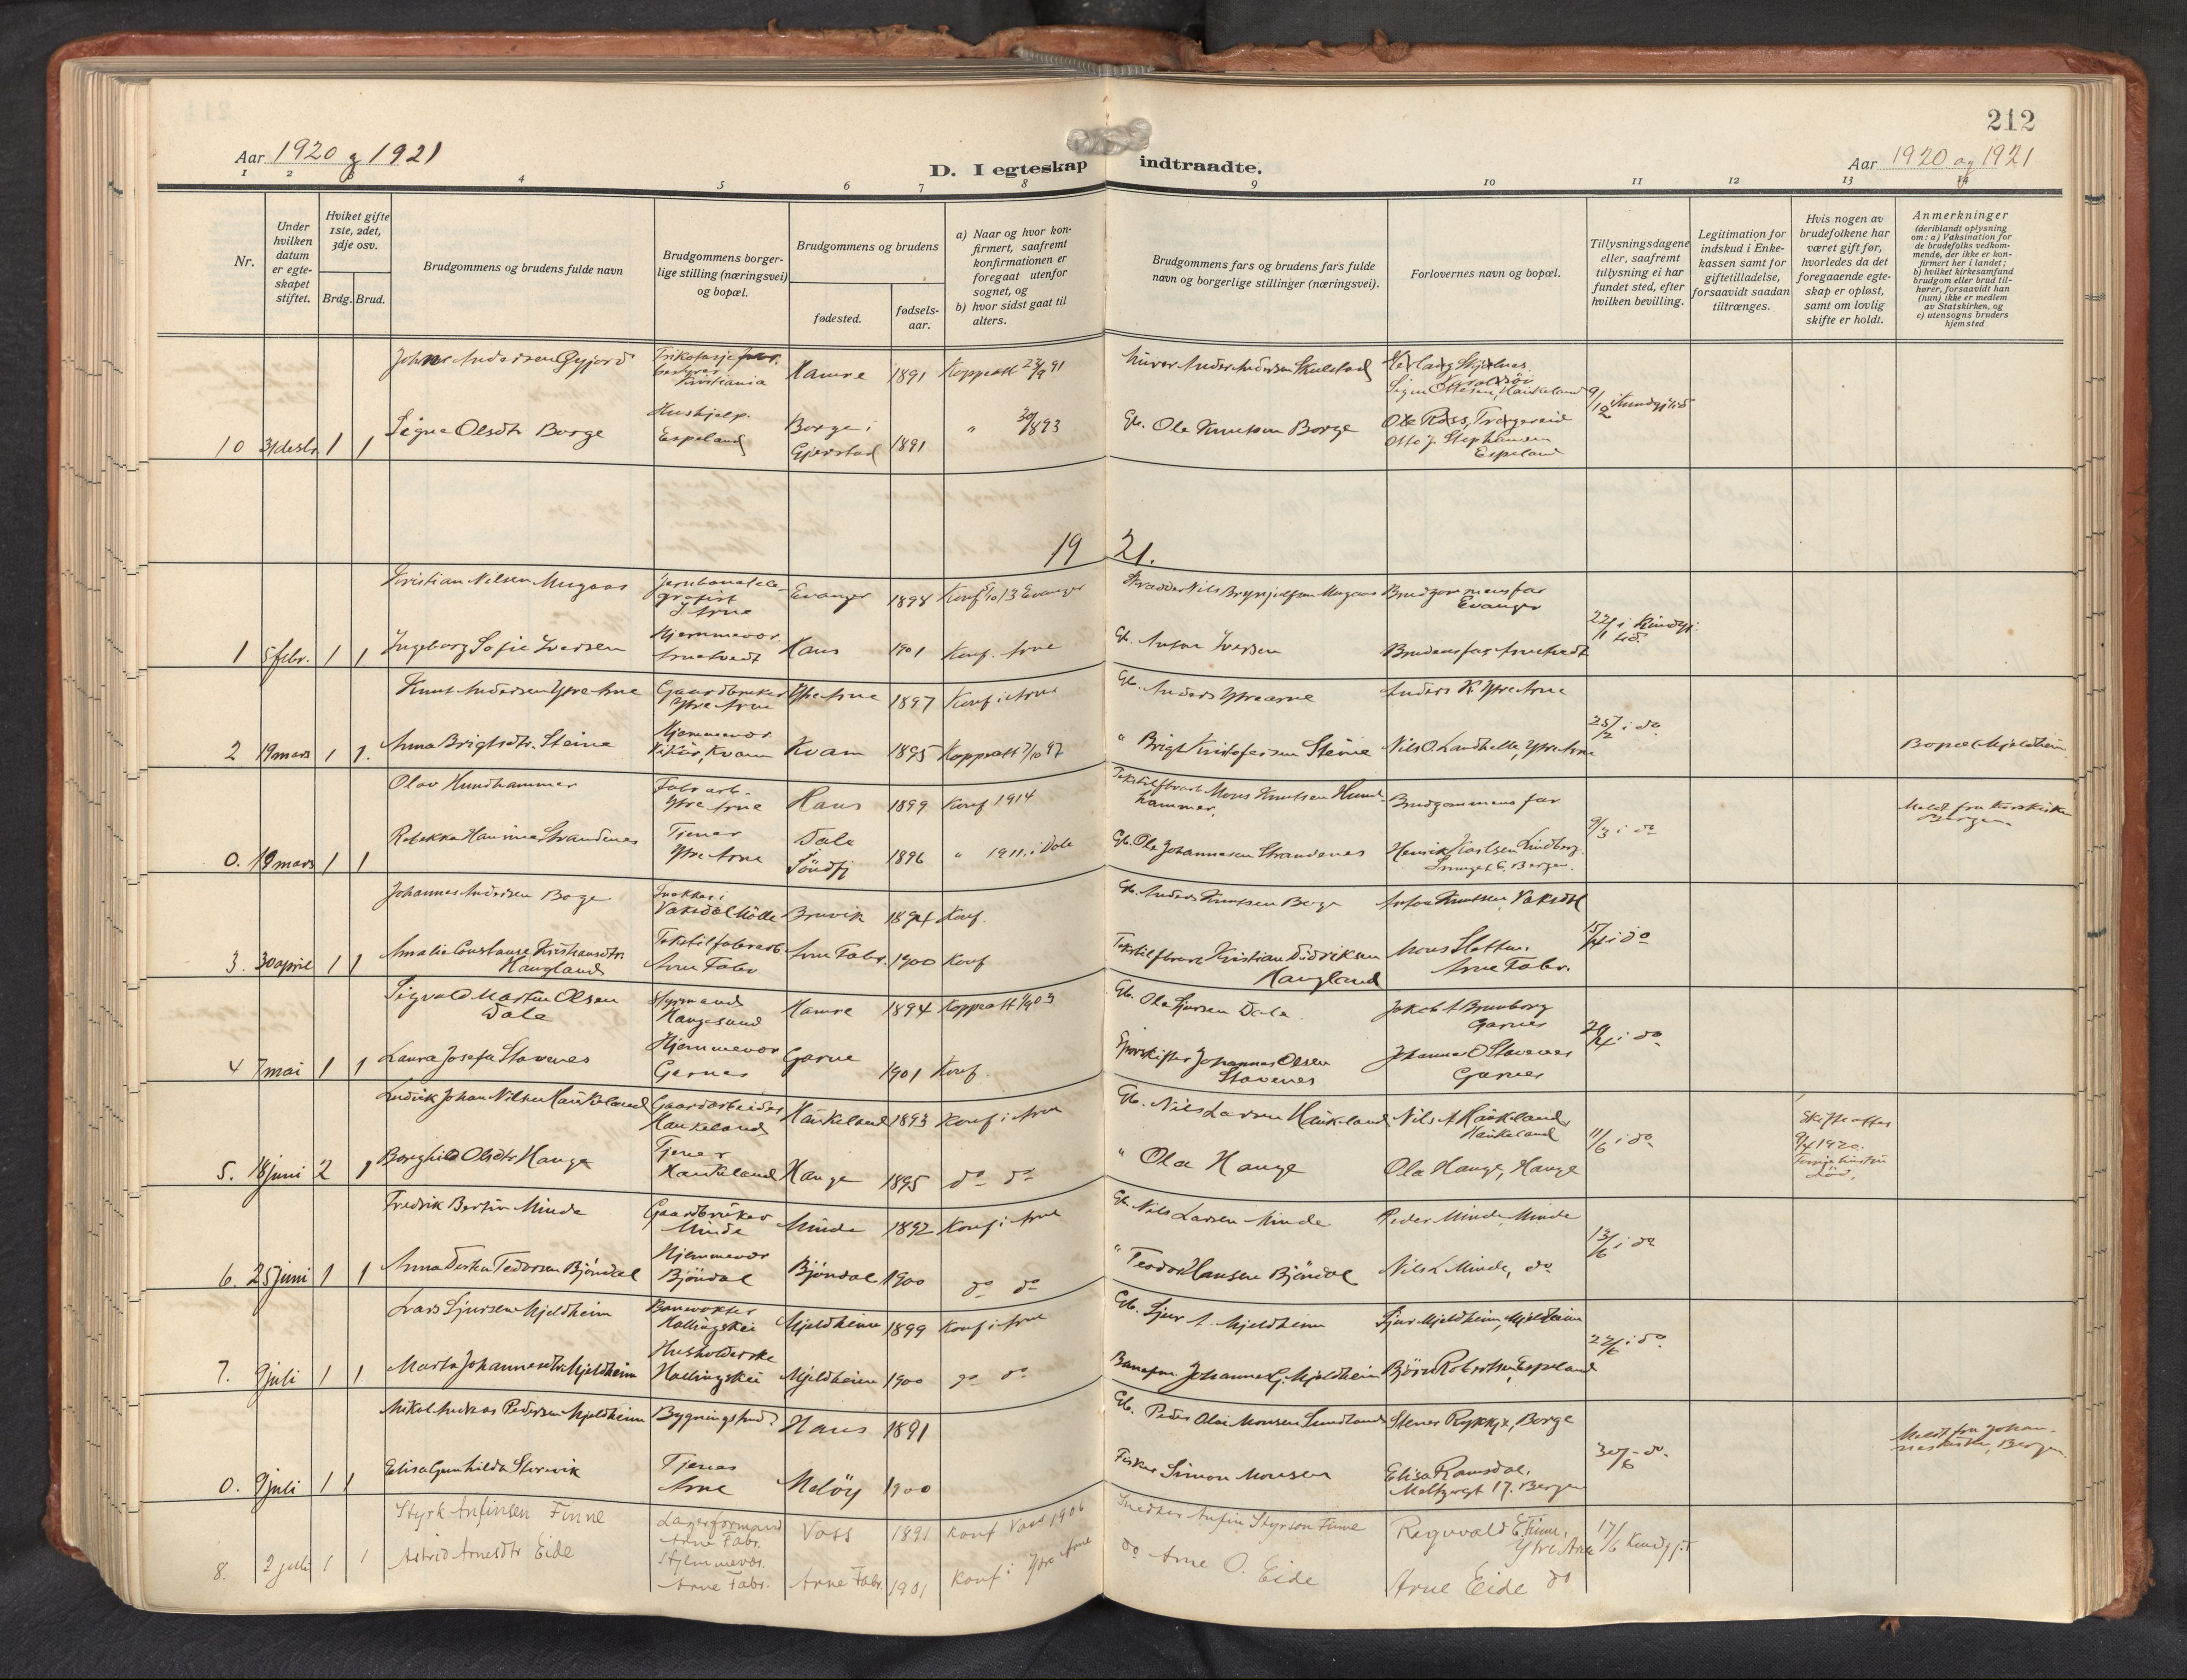 212
Aar 1920 og 1921
D. I egteskap indtraadte.
Aar 1920 og 1921
1 2 3 4 5 6 7 8 9 10 11 12 13 14
Nr.
Under hvilken datum er egteskapet stiftet.
Hvilket gifte 1ste, 2det, 3dje osv.
Brdg. Brud.
Brudgommens og brudens fulde navn
Brudgommens borgerlige stilling (næringsvei) og bopæl.
Brudgommens og brudens
fødested.
fødsels-aar.
a) Naar og hvor konfirmert, saafremt konfirmationen er foregaat utenfor sognet, og
b) hvor sidst gaat til alters.
Brudgommens fars og brudens fars fulde navn og borgerlige stillinger (næringsvei).
Forlovernes navn og bopæl.
Tillysningsdagene eller, saafremt tillysning ei har fundet sted, efter hvilken bevilling.
Legitimation for indskud i Enkekassen samt for giftetilladelse, forsaavidt saadan tiltrænges.
Hvis nogen av brudefolkene har været gift før, hvorledes da det foregaaende egteskap er opløst, samt om lovlig skifte er holdt.
Anmerkninger
(deriblandt oplysning om: a) Vaksination for de brudefolks vedkommende, der ikke er konfirmert her i landet;
b) hvilket kirkesamfund brudgom eller brud tilhører, forsaavidt han (hun) ikke er medlem av Statskirken, og
c) utensogns bruders hjemsted
Johne Andersen Øyjord
Kristiania Hamre 1891 Koppatt 23/9 91
Murer Anders Andersen Skulstad
10 31 desbr. 1 1 Signe Olsdtr Borge
Hushjelp. Espeland
Borge i Gjerstad 1891 " 30/8 93
Gb. Ole Knutsen Borge
Otto J. Stephansen Espeland
9/12
19 21.
Kristian Nilsen Mugaas
Jernbanetelegrafist I. Arne
Evanger 1898 Konf 5/10 13 Evanger
Skrædder Nils Brynjulfsen Mugaas
Brudgommens far Evanger
1 5 febr. 1 1 Ingeborg Sofie Iversen
Hjemmevær. Arnetvedt
Haus 1901 Konf. Arne
Gb. Anton Iversen
Brudens far, Arnetvedt
22/1 i Kundgj. bd.
Knut Andersen Ytre Arne
Gaardbruker Ytre Arne
Ytre Arne 1897 Konf i Arne
Gb. Anders Ytrearne
Anders K. Ytre Arne
2 19 mars 1 1. Anna Brigtsdtr. Steine
Hjemmevær Vikør, Kvam
Kvam 1895 Koppatt 7/10 97
" Brigt Kristofersen Steine
Nils O. Landhelle, Ytre Arne
25/2 i do
Bopæl Mjeldheim
Olav Hundhammer
Fabr arb. Ytre Arne
Haus 1899 Konf 1914
Mons Knutsen Hundhammer.
Brudgommens far
Meldt fra Korskirken Bergen
0. 19 mars 1 1 Rebekka Hansine Strandenes
Tjener Ytre Arne
Dale i Söndfj 1896 " 1911, i Dale
Gb. Ole Johannesen Strandenes
Henrik Karlsen Lindberg. Bergen.
9/3 i do
Johannes Andersen Borge
Vaksdal Mölle
Bruvik 1894 Konf.
Gb. Anders Knutsen Borge
Anton Knutsen Vaksdal
3. 30 april 1 1 Amalie Constanse Kristiansdtr. Haugland
Tekstilfabrarb. Arne Fabr
Arne Fabr. 1900 Konf
Kristian Didriksen Haugland
Mons Slotten. Arne Fabr.
15/4 i do
Sigvald Martin Olsen Dale
Styrmand Haugesund
Hamre 1894 Koppatt 1903
Gb. Ole Sjursen Dale.
Jakob A Brunborg Garnes
4 7 mai 1 1 Laura Josefa Stavenes
Hjemmevær Garnes
Garne 1901 Konf.
Sporskifter Johannes Olsen Stavenes
Johannes O Stavenes Garnes
29/4 i do
Ludvik Johan Nilsen Haukeland
Gaardarbeider Haukeland
Haukeland 1893 Konf i Arne
Gb. Nils Larsen Haukeland
Nils A Haukeland, Haukeland
Skifteattes 9/4 1920. Forrige hustru död.
5. 18 juni 2 1 Borghild Olsdtr Hauge
Tjener Haukeland
Hauge 1895 do do
" Ola Hauge
Ola Hauge, Hauge
11/6 i do
Fredrik Bertin Minde
Gaardbruker Minde
Minde 1892 Konf i Arne
Gb. Nils Larsen Minde
Peder Minde, Minde
6. 25 juni 1 1 Anna Dorthea Tedorsen Bjöndal
Hjemmevær Bjöndal
Bjöndal 1900 do do
" Teodor Hansen Bjöndal
Nils L Minde, do
13/6 i do
Lars Sjursen Mjeldheim
Banevokter Hallingskei
Mjeldheim 1899 Konf i Arne
Gb. Sjur A. Mjeldheim
Sjur Mjeldheim, Mjeldheim
7. 9 juli 1 1 Marta Johannesdtr. Mjeldheim
Husholderske Hallingskei
Mjeldheim 1900 do do
Baneform. Johannes G. Mjeldheim
Björn Robertsen, Espeland
22/6 i do
Mikal Andreas Pedersen Mjeldheim
Haus 1891
Gb. Peder Olai Monsen Sundland
Stener Rykkje, Borge
Meldt fra Johanneskirken, Bergen
0. 9 juli 1 1 Elisa Gunhilda Storvik
Tjener Arne
Melöy 1900
Fisker Simon Monsen
Elisa Ramsdal. Meltzersgt 17. Bergen
30/6 - do.
Styrk Anfinsen Finne
Lagerformand Arne Fabr.
Voss 1891 Konf Voss 1906
Snedker Anfin Styrson Finne
Ragnvald E. Finne, Ytre Arne
17/6 Kundgjt
8. 2 juli 1 1 Astrid Arnesdtr Eide
Hjemmevær. Arne Fabr.
Arne Fabr. 1901 Konf i Ytre Arne
do Arne O. Eide
Arne Eide do